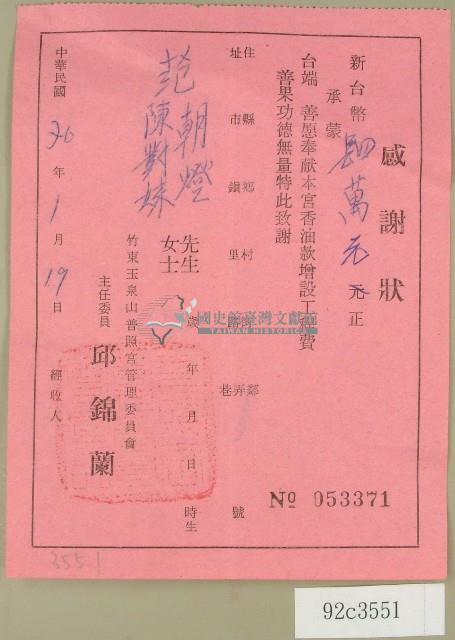 感謝狀
新台幣肆萬元正
承蒙
台端 善愿奉献本宮香油款增設工程費
善果功德無量特此致謝
住址 縣市 鄉鎮 村里 路 鄰弄巷 號
范朝燈
陳對妹
先生
女士
歲 年 月 日 時生
竹東玉泉山普照宮管理委員會
主任委員 邱錦蘭
經收人
中華民國 76 年 1 月 19 日
№ 053371
國史館臺灣文獻館
TAIWAN HISTORICA
3551
92c3551